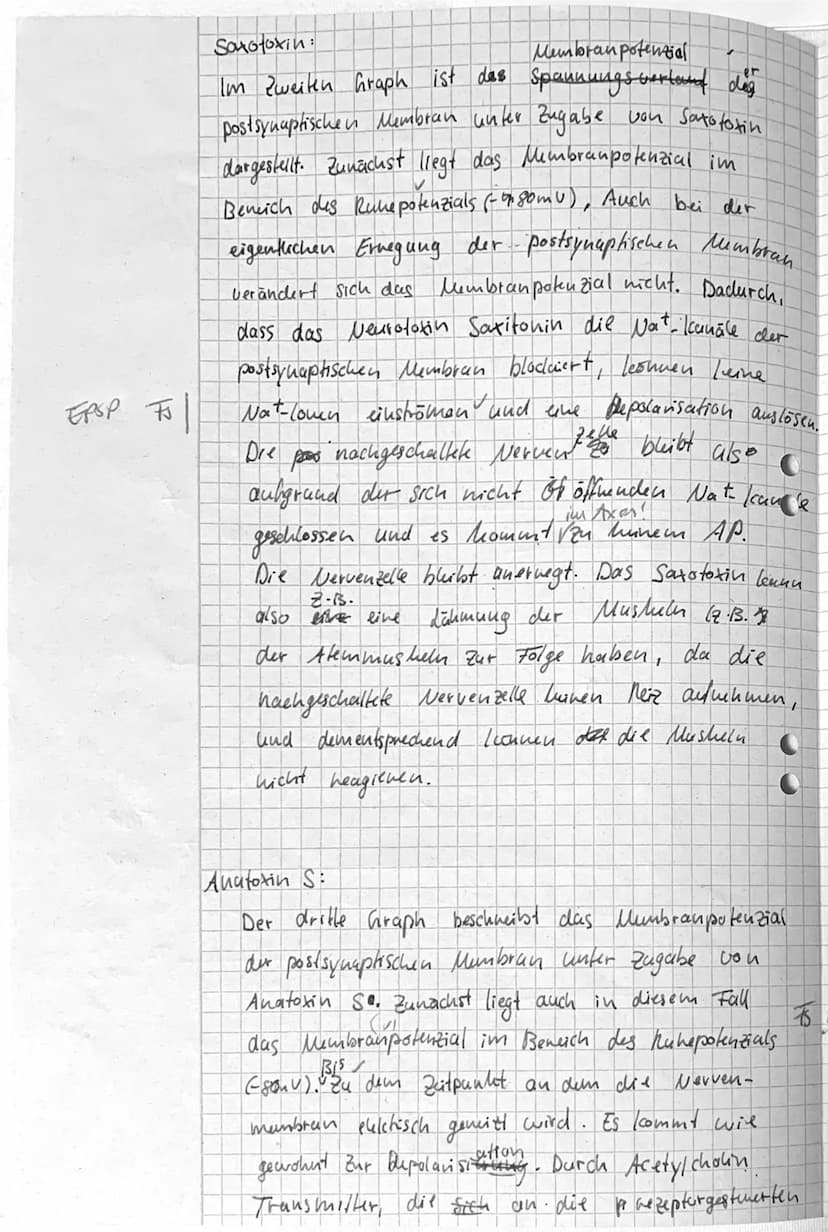 Saxotoxin:
Membranpotenzial
Im zweiten Graph ist das Spannungsverlauf der
postsynaptischen Membran unter Zugabe von Saxotoxin
dargestellt. Zunächst liegt das Membranpotenzial im
Bereich des Ruhepotenzials (-80mV), Auch bei der
eigentlichen Erregung der postsynaptischen Membran
verändert sich das Membranpotenzial nicht. Dadurch,
dass das Neurotoxin Saxitonin die Na+-kanäle der
postsynaptischen Membran blockiert, können keine
EPSP Fs Na+-Ionen einströmen und eine Depolarisation auslösen.
Die nachgeschaltete Nervenzelle bleibt also
aufgrund der sich nicht öffnenden Na+-kanäle
im Axon!
geschlossen und es kommt zu keinem AP.
Die Nervenzelle bleibt unerregt. Das Saxotoxin kann
z.B.
also eine eine Lähmung der Muskeln (z.B.
der Atemmuskeln zur Folge haben, da die
nachgeschaltete Nervenzelle keinen Reiz aufnehmen,
und dementsprechend können die Muskeln
nicht reagieren.
Anatoxin S:
Der dritte Graph beschreibt das Membranpotenzial
der postsynaptischen Membran unter Zugabe von
Anatoxin S. Zunächst liegt auch in diesem Fall
das Membranpotenzial im Bereich des Ruhepotenzials Fs
(-80mV). Bis zu dem Zeitpunkt an dem die Nerven-
membran elektisch gereitz wird. Es kommt wie
gewohnt zur Depolarisation. Durch Acetylcholin
Transmitter, die sich an die rezeptorgesteuerten